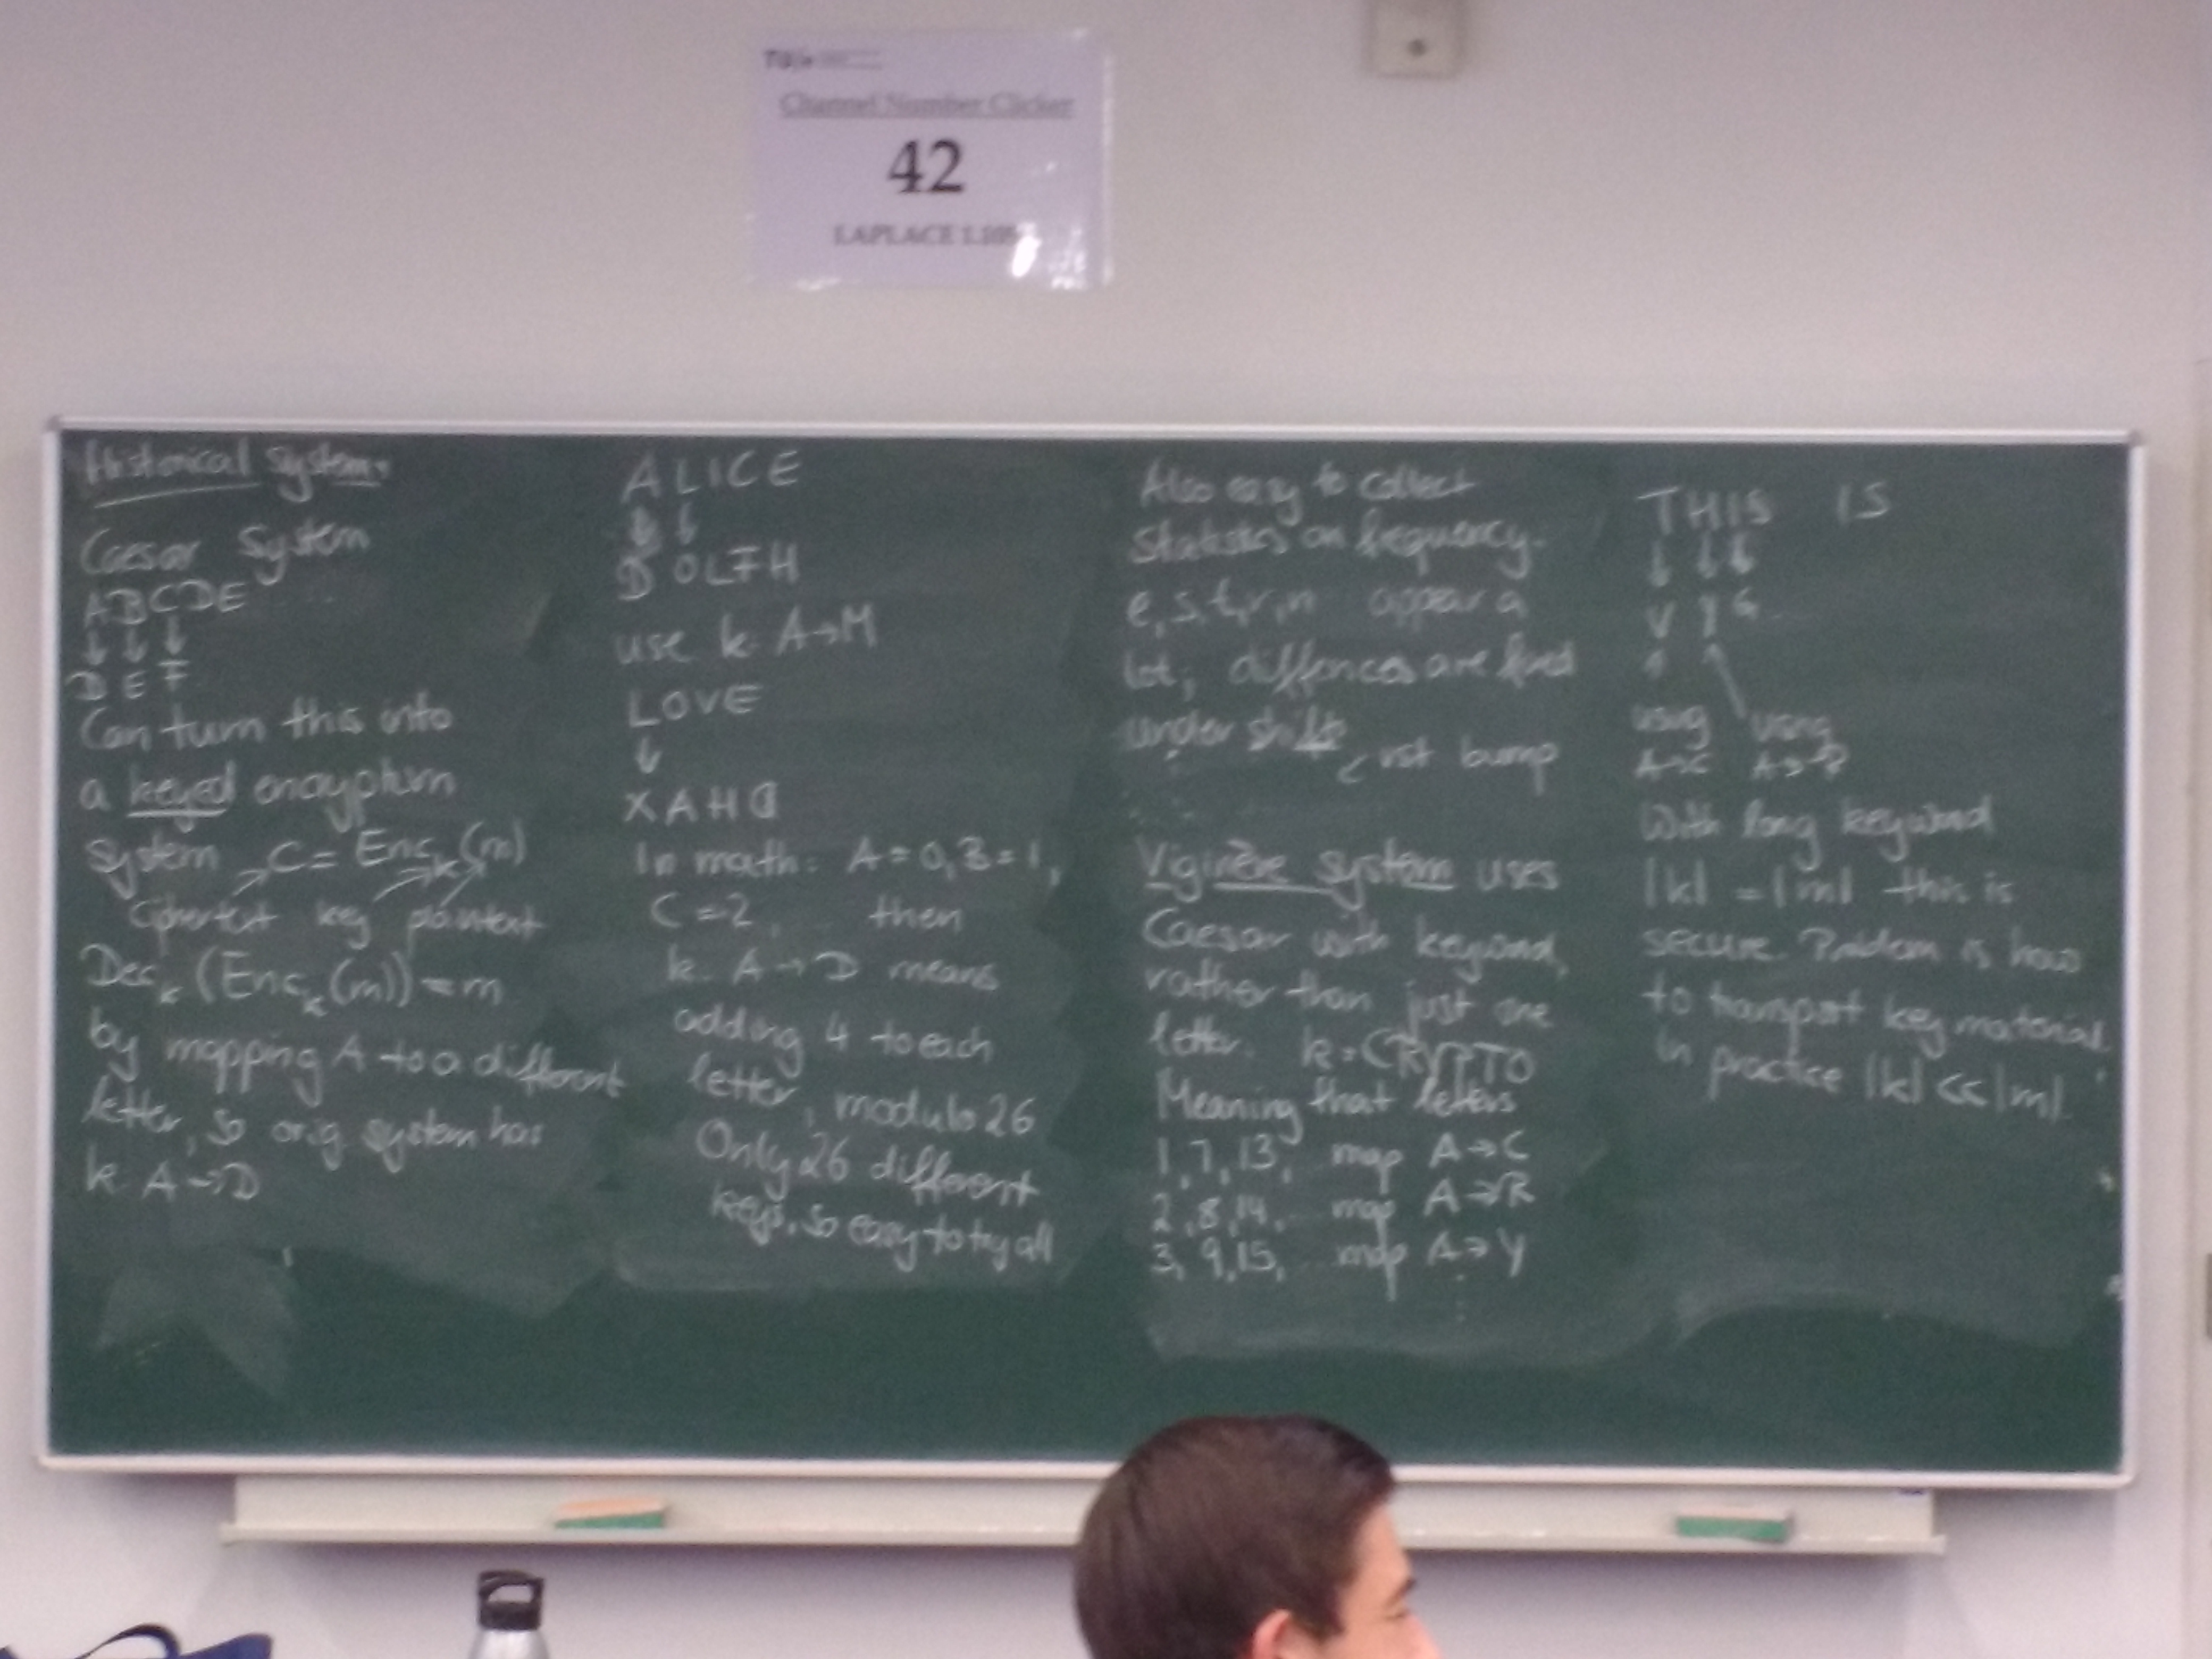 TU/e
Channel Number Clicker
42
LAPLACE
Historical systems
Caesar System
ABCDE
D E F
Can turn this into
a keyed encryption
system C = Enc_k(m)
ciphertext key plaintext
Dec_k (Enc_k(m)) = m
by mapping A to a different
letter, so orig. system has
k: A → D
ALICE
D OLFH
use k: A → M
LOVE
XAHQ
In math: A = 0, B = 1,
C = 2, ... then
k: A → D means
adding 4 to each
letter, modulo 26
Only 26 different
keys, so easy to try all
Also easy to collect
statistics on frequency.
e, s, t, r, n appear a
lot; diffences are fixed
under shifts
rst bump
Viginère system uses
Caesar with keyword,
rather than just one
letter. k = CRYPTO
Meaning that letters
1, 7, 13, ... map A → C
2, 8, 14, ... map A → R
3, 9, 15, ... map A → Y
THIS IS
V Y G ...
using using
A→C A→R
With long keyword
|k| = |m| this is
secure. Problem is how
to transport key material
in practice |k| << |m|.